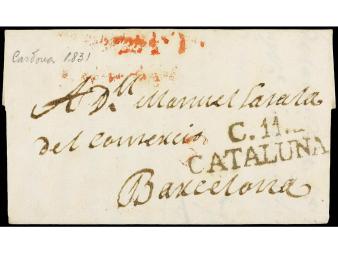 Cardona 1831
A Dn Manuel Lasala
del Comercio
C. 11.
CATALUÑA
Barcelona